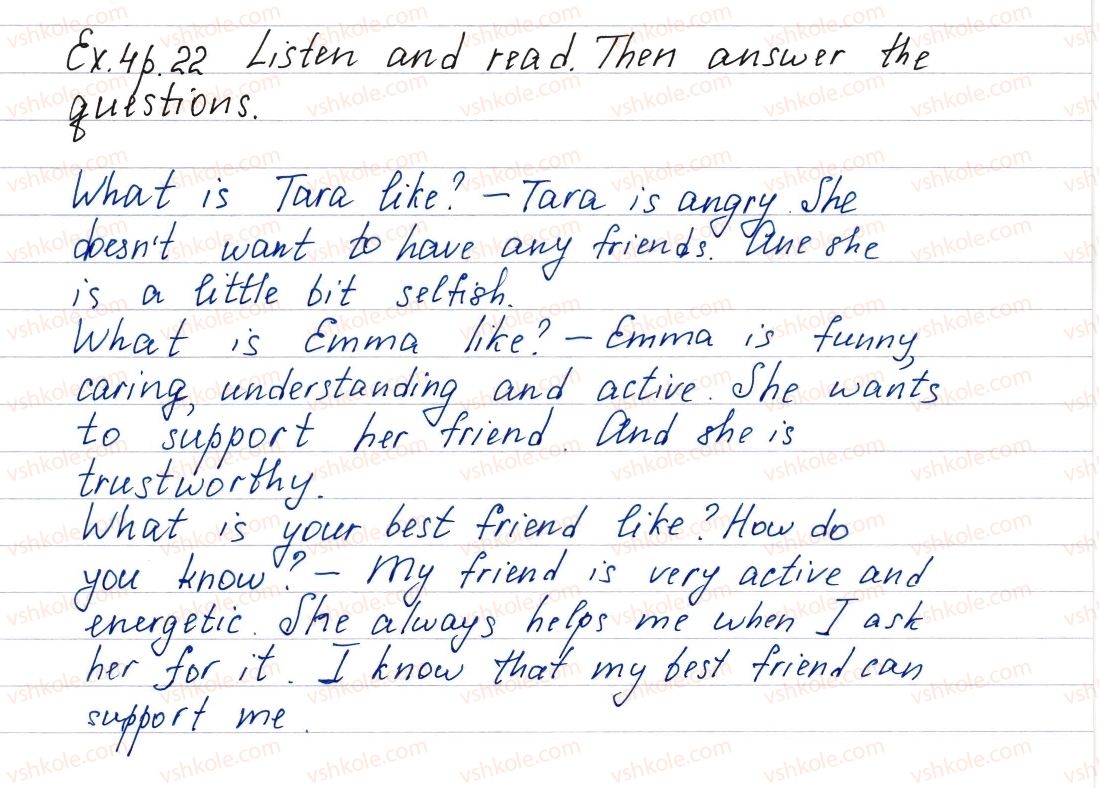 Ex. 4 p. 22 Listen and read. Then answer the
questions.
What is Tara like? – Tara is angry. She
doesn't want to have any friends. Ane she
is a little bit selfish.
What is Emma like? – Emma is funny,
caring, understanding and active. She wants
to support her friend. And she is
trustworthy.
What is your best friend like? How do
you know? – My friend is very active and
energetic. She always helps me when I ask
her for it. I know that my best friend can
support me.